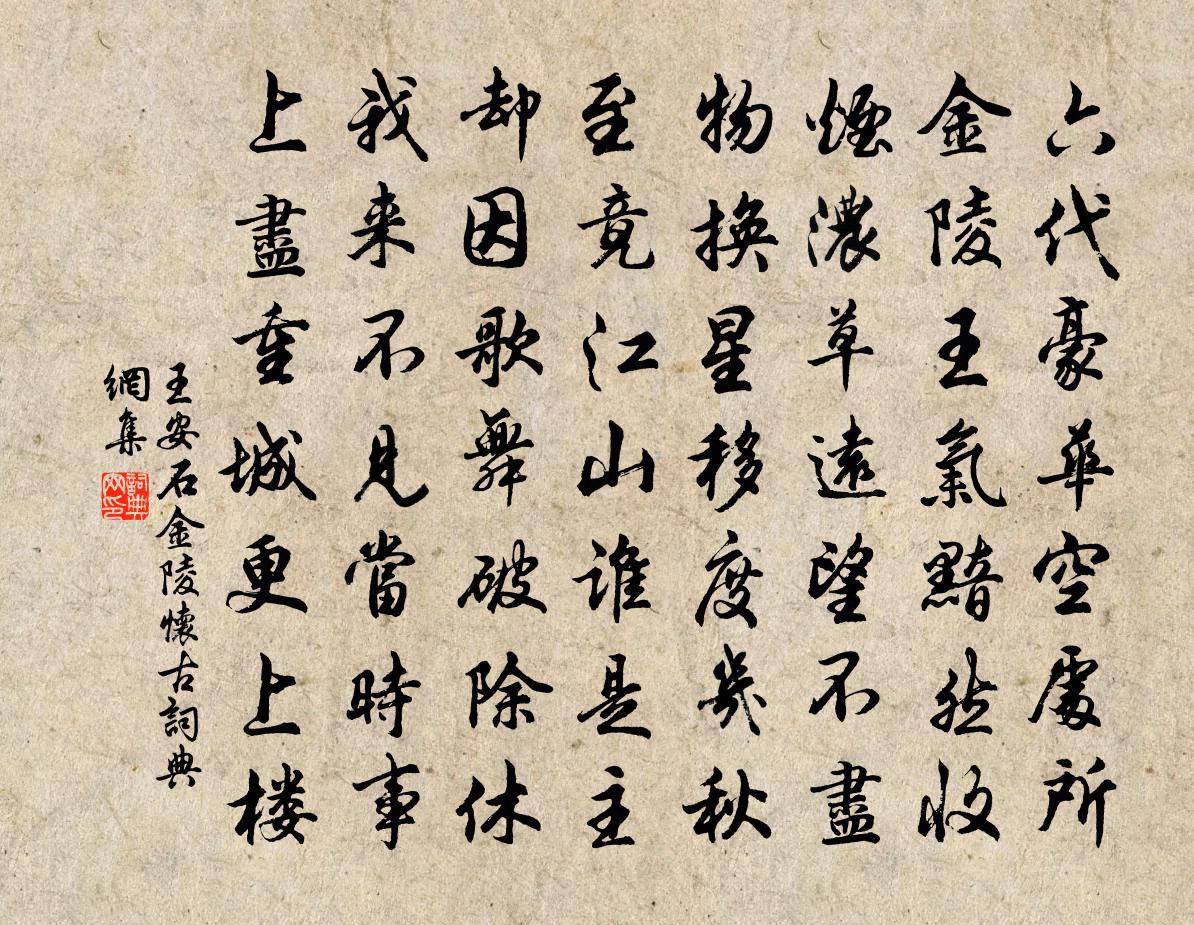 六代豪華空處所
金陵王氣黯然收
煙濃草遠望不盡
物換星移度幾秋
至竟江山誰是主
却因歌舞破除休
我来不見當時事
上盡重城更上楼
王安石金陵懷古詞典
網集
詞典
网印